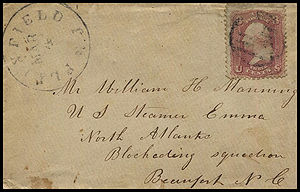 FIELD
MAR
U S
Mr William H Manning
U S Steamer Emma
North Atlantic
Blockading squadron
Beaufort N C